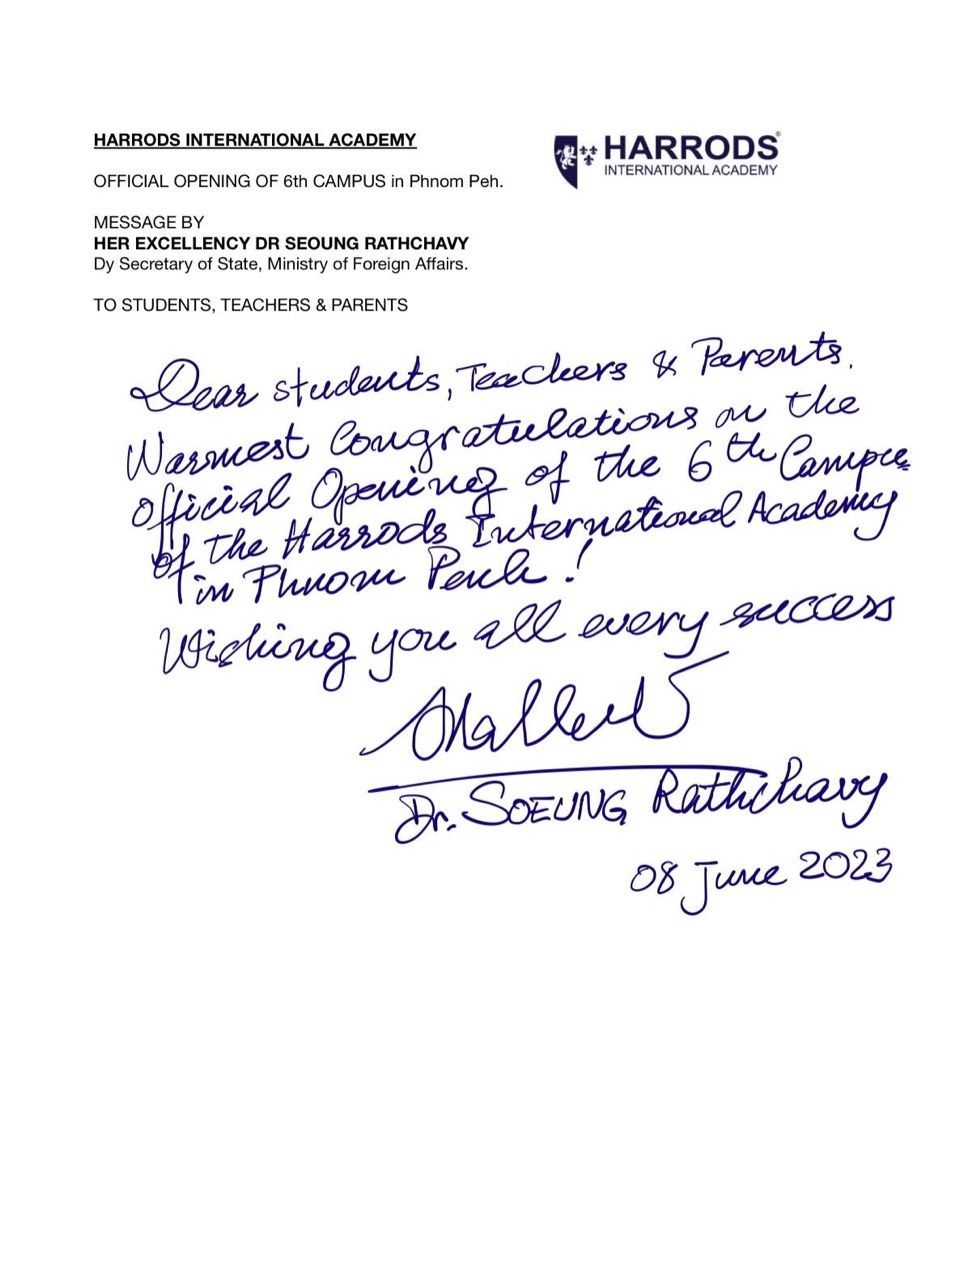 HARRODS INTERNATIONAL ACADEMY
HARRODS®
INTERNATIONAL ACADEMY
OFFICIAL OPENING OF 6th CAMPUS in Phnom Peh.
MESSAGE BY
HER EXCELLENCY DR SEOUNG RATHCHAVY
Dy Secretary of State, Ministry of Foreign Affairs.
TO STUDENTS, TEACHERS & PARENTS
Dear students, Teachers & Parents.
Warmest Congratulations on the
official Opening of the 6th Campus
of the Harrods International Academy
in Phnom Penh!
Wishing you all every success
Dr. SOEUNG Rathchavy
08 June 2023